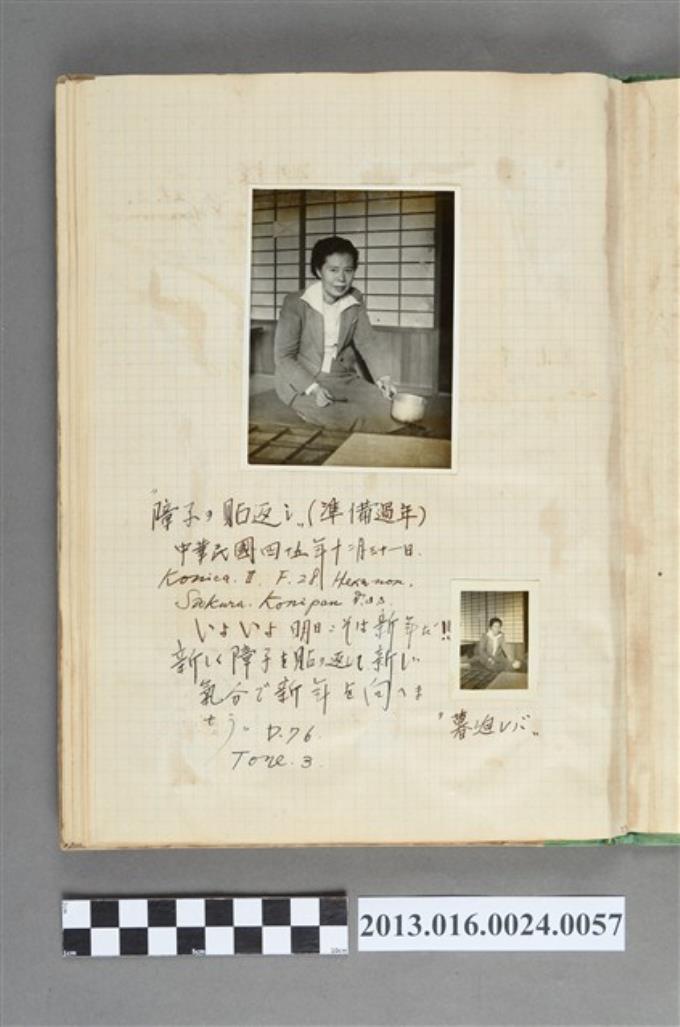 "障子ノ貼返シ"(準備過年)
中華民國四五年十二月三十一日.
Konica. II. F. 28 Hexanon.
Sakura. Konipan S.S.S.
いよいよ明日こそは新年だ!!
新しく障子を貼り返して新しい
氣分で新年を向へま
せう。 D.76.
Tone. 3.
"暮迫レバ"
2013.016.0024.0057
1cm
5cm
10cm